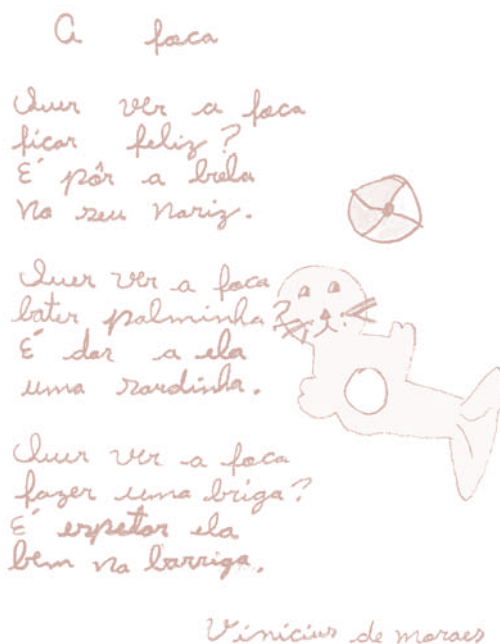 A foca
Quer ver a foca
ficar feliz?
É pôr a bola
no seu nariz.
Quer ver a foca
bater palminha?
É dar a ela
uma sardinha.
Quer ver a foca
fazer uma briga?
É espetar ela
bem na barriga.
Vinicius de moraes